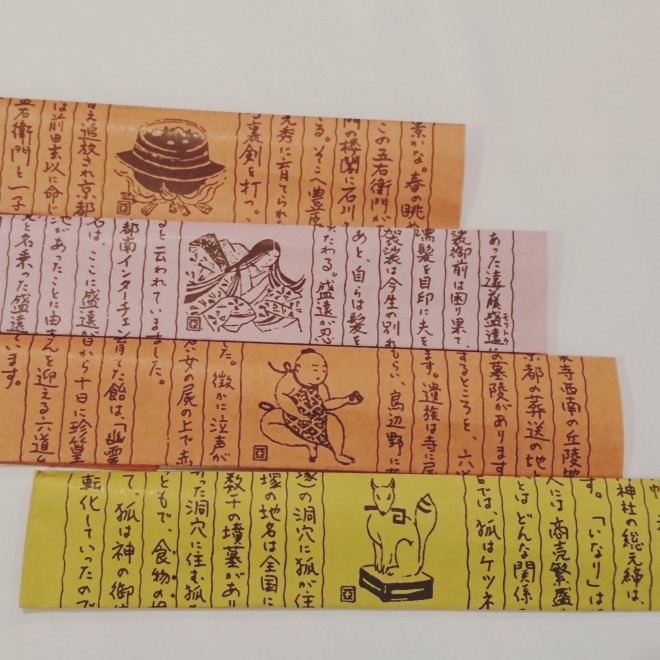 景かな。春の眺
この五右衛門が
門の楼閣に石川
る。そこへ豊臣
光秀に育てられ
る裏剣を打つ。
え追放され京都
は前田玄以に命じ
五右衛門と一子
あった遠藤盛遠
裟御前は困り果て、
濡髪を目印に夫を
袈裟は今生の別れ
あと、自らは髪を
たわる。盛遠が忍
ると云われていました。
都南インターチェン
名は、ここに盛遠
池があったことに由
と名乗った盛遠
泉寺西南の丘陵地
京都の葬送の地と
の墓陵があります
するところと、六
ます。遺族は寺に
もらい、鳥辺野に
た。微かに泣声が
い女の屍の上で赤
育てた飴は、「幽霊
昔から十日に珍皇
さんを迎える六道
います。
神社の総元締は、
す。「いなり」は
人には商売繁盛
とはどんな関係
では、狐はケツネ
塚の洞穴に狐が住
塚の地名は全国に
数千の墳墓があり
った洞穴に住む狐
ともで、食物の
て、狐は神の御
転化していったので